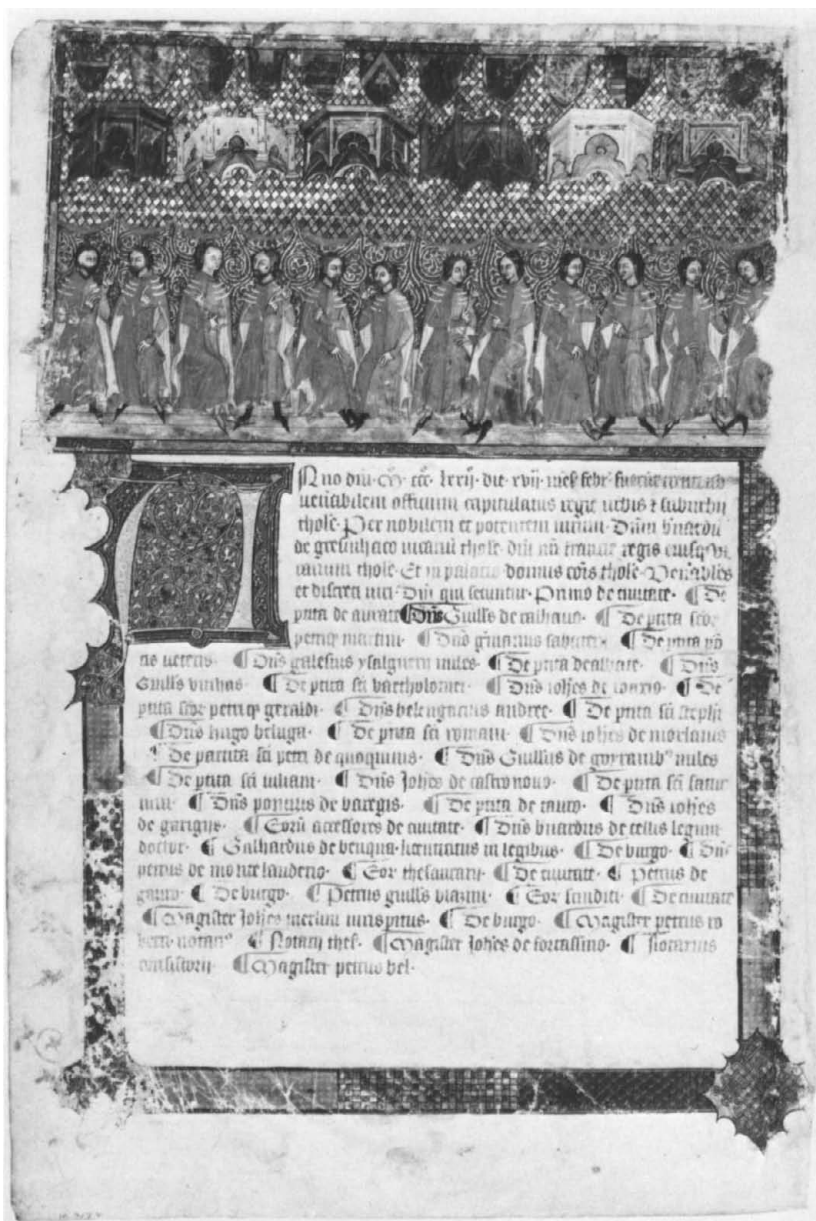 Anno dni m ccc lxxij die xvij mes febr fuerunt
venerabilem officium capitulatus regie urbis & suburbii
thole Per nobilem et potentem virum Dnm bnardu
de vicariu thole dni nri francie regis eiusq vi
carium thole Et in palatio domus cois thole Venables
et discreti viri Dni qui secuntur Primo de civitate ¶ De
ptita de aurate ¶ Dns Guills de ¶ De ptita scor
petri & martini ¶ Dns ¶ De ptita po
tis veteris ¶ Dns ysalguerii miles ¶ De ptita dealbate ¶ Dns
Guills ¶ De ptita sci bartholomei ¶ Dns iohes de ¶ De
ptita scor petri & geraldi ¶ Dns andree ¶ De ptita sci stephi
¶ Dns hugo beluga ¶ De ptita sci romani ¶ Dns iohes de morlanis
¶ De partita sci petri de quoquinis ¶ Dns Guillus de miles
¶ De ptita sci iuliani ¶ Dns Johes de castro novo ¶ De ptita sci satur
nini ¶ Dns de varegis ¶ De ptita de tauro ¶ Dns iohes
de garigiis ¶ Eoru accessores de civitate ¶ Dns bnardus de legum
doctor ¶ Galhardus de benqua licentiatus in legibus ¶ De burgo ¶ Dns
petrus de monte landerio ¶ Eor thesaurarii ¶ De civitate ¶ Petrus de
¶ De burgo ¶ Petrus guills ¶ Eor sindici ¶ De civitate
¶ Magister Johes iurispitus ¶ De burgo ¶ Magister petrus ro
berti notarius ¶ Notarii thes ¶ Magister Johes de ¶ Notarius
consistorii ¶ Magister petrus bel